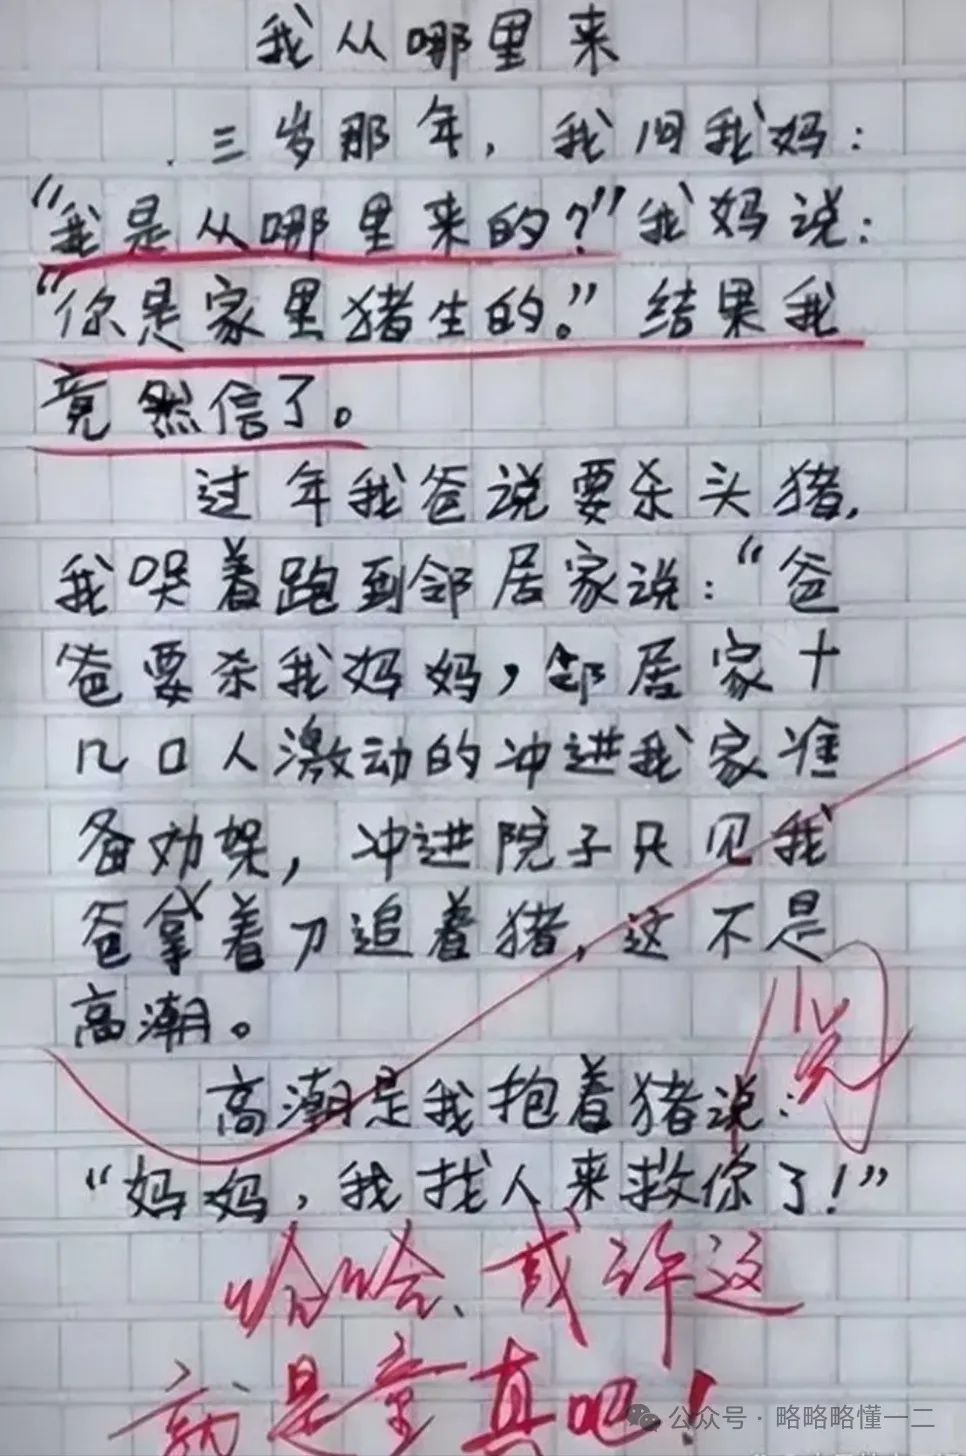 我从哪里来
三岁那年，我问我妈：
“我是从哪里来的？”我妈说：
“你是家里猪生的。”结果我
竟然信了。
过年我爸说要杀头猪，
我哭着跑到邻居家说：“爸
爸要杀我妈妈，邻居家十
几口人激动的冲进我家准
备劝架，冲进院子只见我
爸拿着刀追着猪，这不是
高潮。
高潮是我抱着猪说：
“妈妈，我找人来救你了！”
阅
哈哈、或许这
就是童真吧！
公众号·略略略懂一二